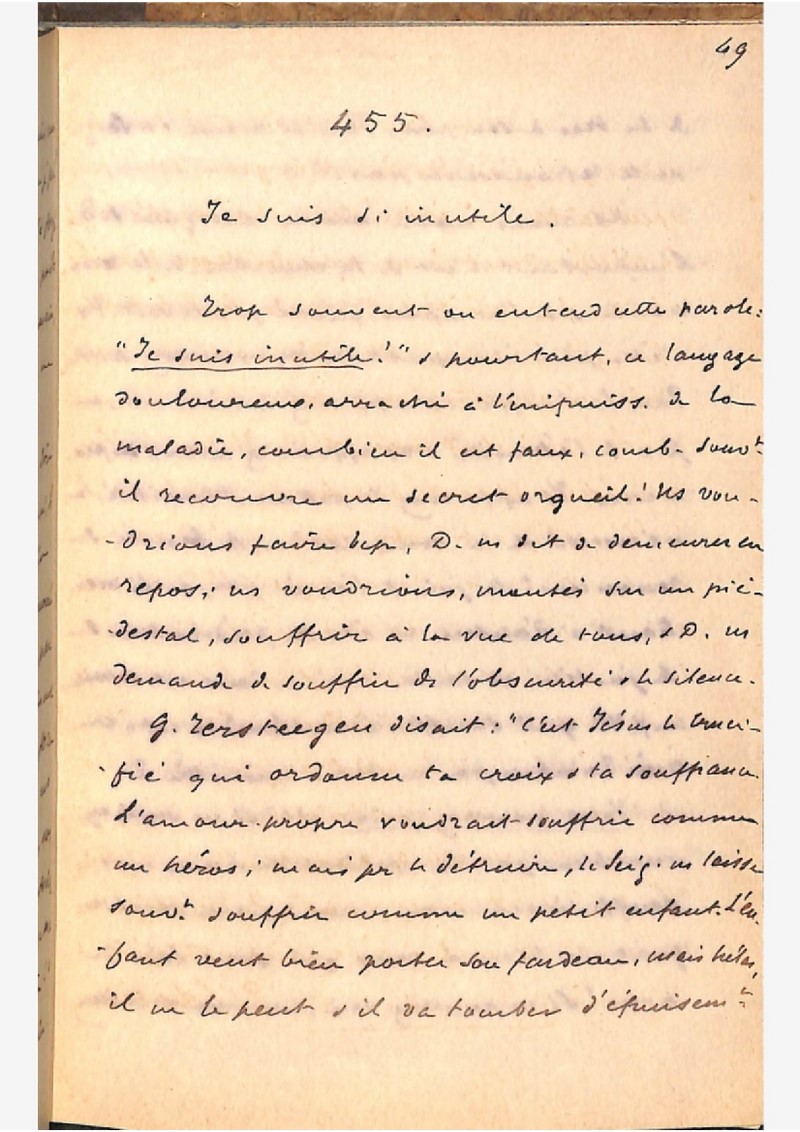 49
455.
Je suis si inutile.
Trop souvent on entend cette parole:
"Je suis inutile!" & pourtant, ce langage
douloureux, arraché à l'énipuiss. de la
maladie, combien il est faux, comb. souv.t
il recouvre un secret orgueil! Ns vou-
-drions faire bcp, D. ns dit de demeurer en
repos; ns voudrions, montés sur un pié-
-destal, souffrir à la vue de tous, & D. ns
demande de souffrir ds l'obscurité & le silence.
G. Tersteegen disait: "C'est Jésus le Cruci-
-fié qui ordonne ta croix & ta souffrance.
L'amour-propre voudrait souffrir comme
un héros; mais pr le détruire, le Seig. ns laisse
souv.t souffrir comme un petit enfant. L'en-
-fant veut bien porter son fardeau, mais hélas,
il ne le peut & il va tomber d'épuisem.t